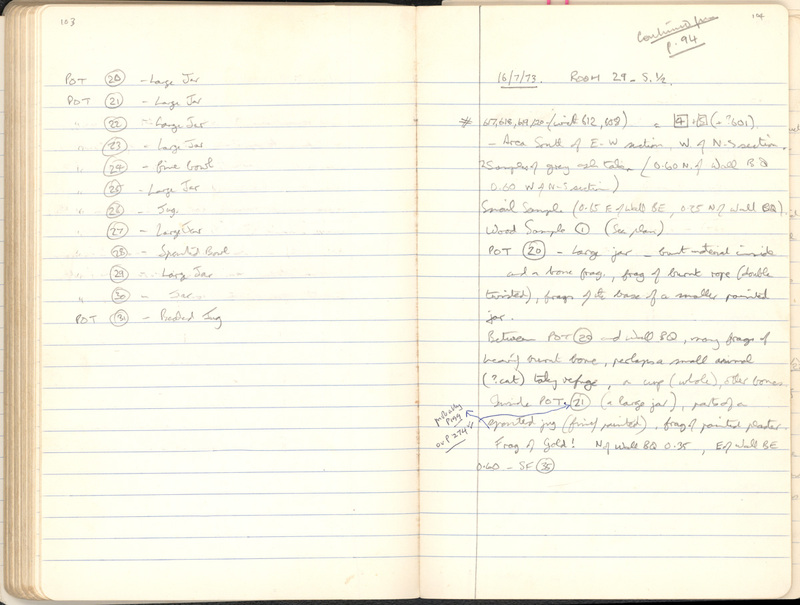 103
POT 20 - Large Jar
POT 21 - Large Jar
" 22 - Large Jar
" 23 - Large Jar
" 24 - Fine bowl
" 25 - Large Jar
" 26 - Jug
" 27 - Large Jar
" 28 - Spouted Bowl
" 29 - Large Jar
" 30 - Jar
POT 31 - Jug
104
Continued from
p. 94
16/7/73. ROOM 29 - S. 1/2.
617, 618, 612, = 4 + 5 (= ?601)
- Area South of E-W section, W of N-S section.
2 Samples of grey ash taken (0.60 N. of Wall BQ
0.60 W of N-S section)
Snail Sample (0.15 E of Wall BE, 0.25 N of Wall BQ)
Wood Sample 1 (See plan)
POT 20 - Large jar - burnt material inside
and a bone frag., frag of burnt rope (double
twisted), frags of the base of a smaller painted
jar.
Between POT 20 and Wall BQ, many frags of
burnt bone, perhaps a small animal
(?cat) taking refuge, a cup (whole), other bones.
Inside POT 21 (a large jar), parts of a
spouted jug (finely painted), frag of painted plaster.
probably
or P 274
Frag of Gold! N of Wall BQ 0.35, E of Wall BE
0.60 - SF 35